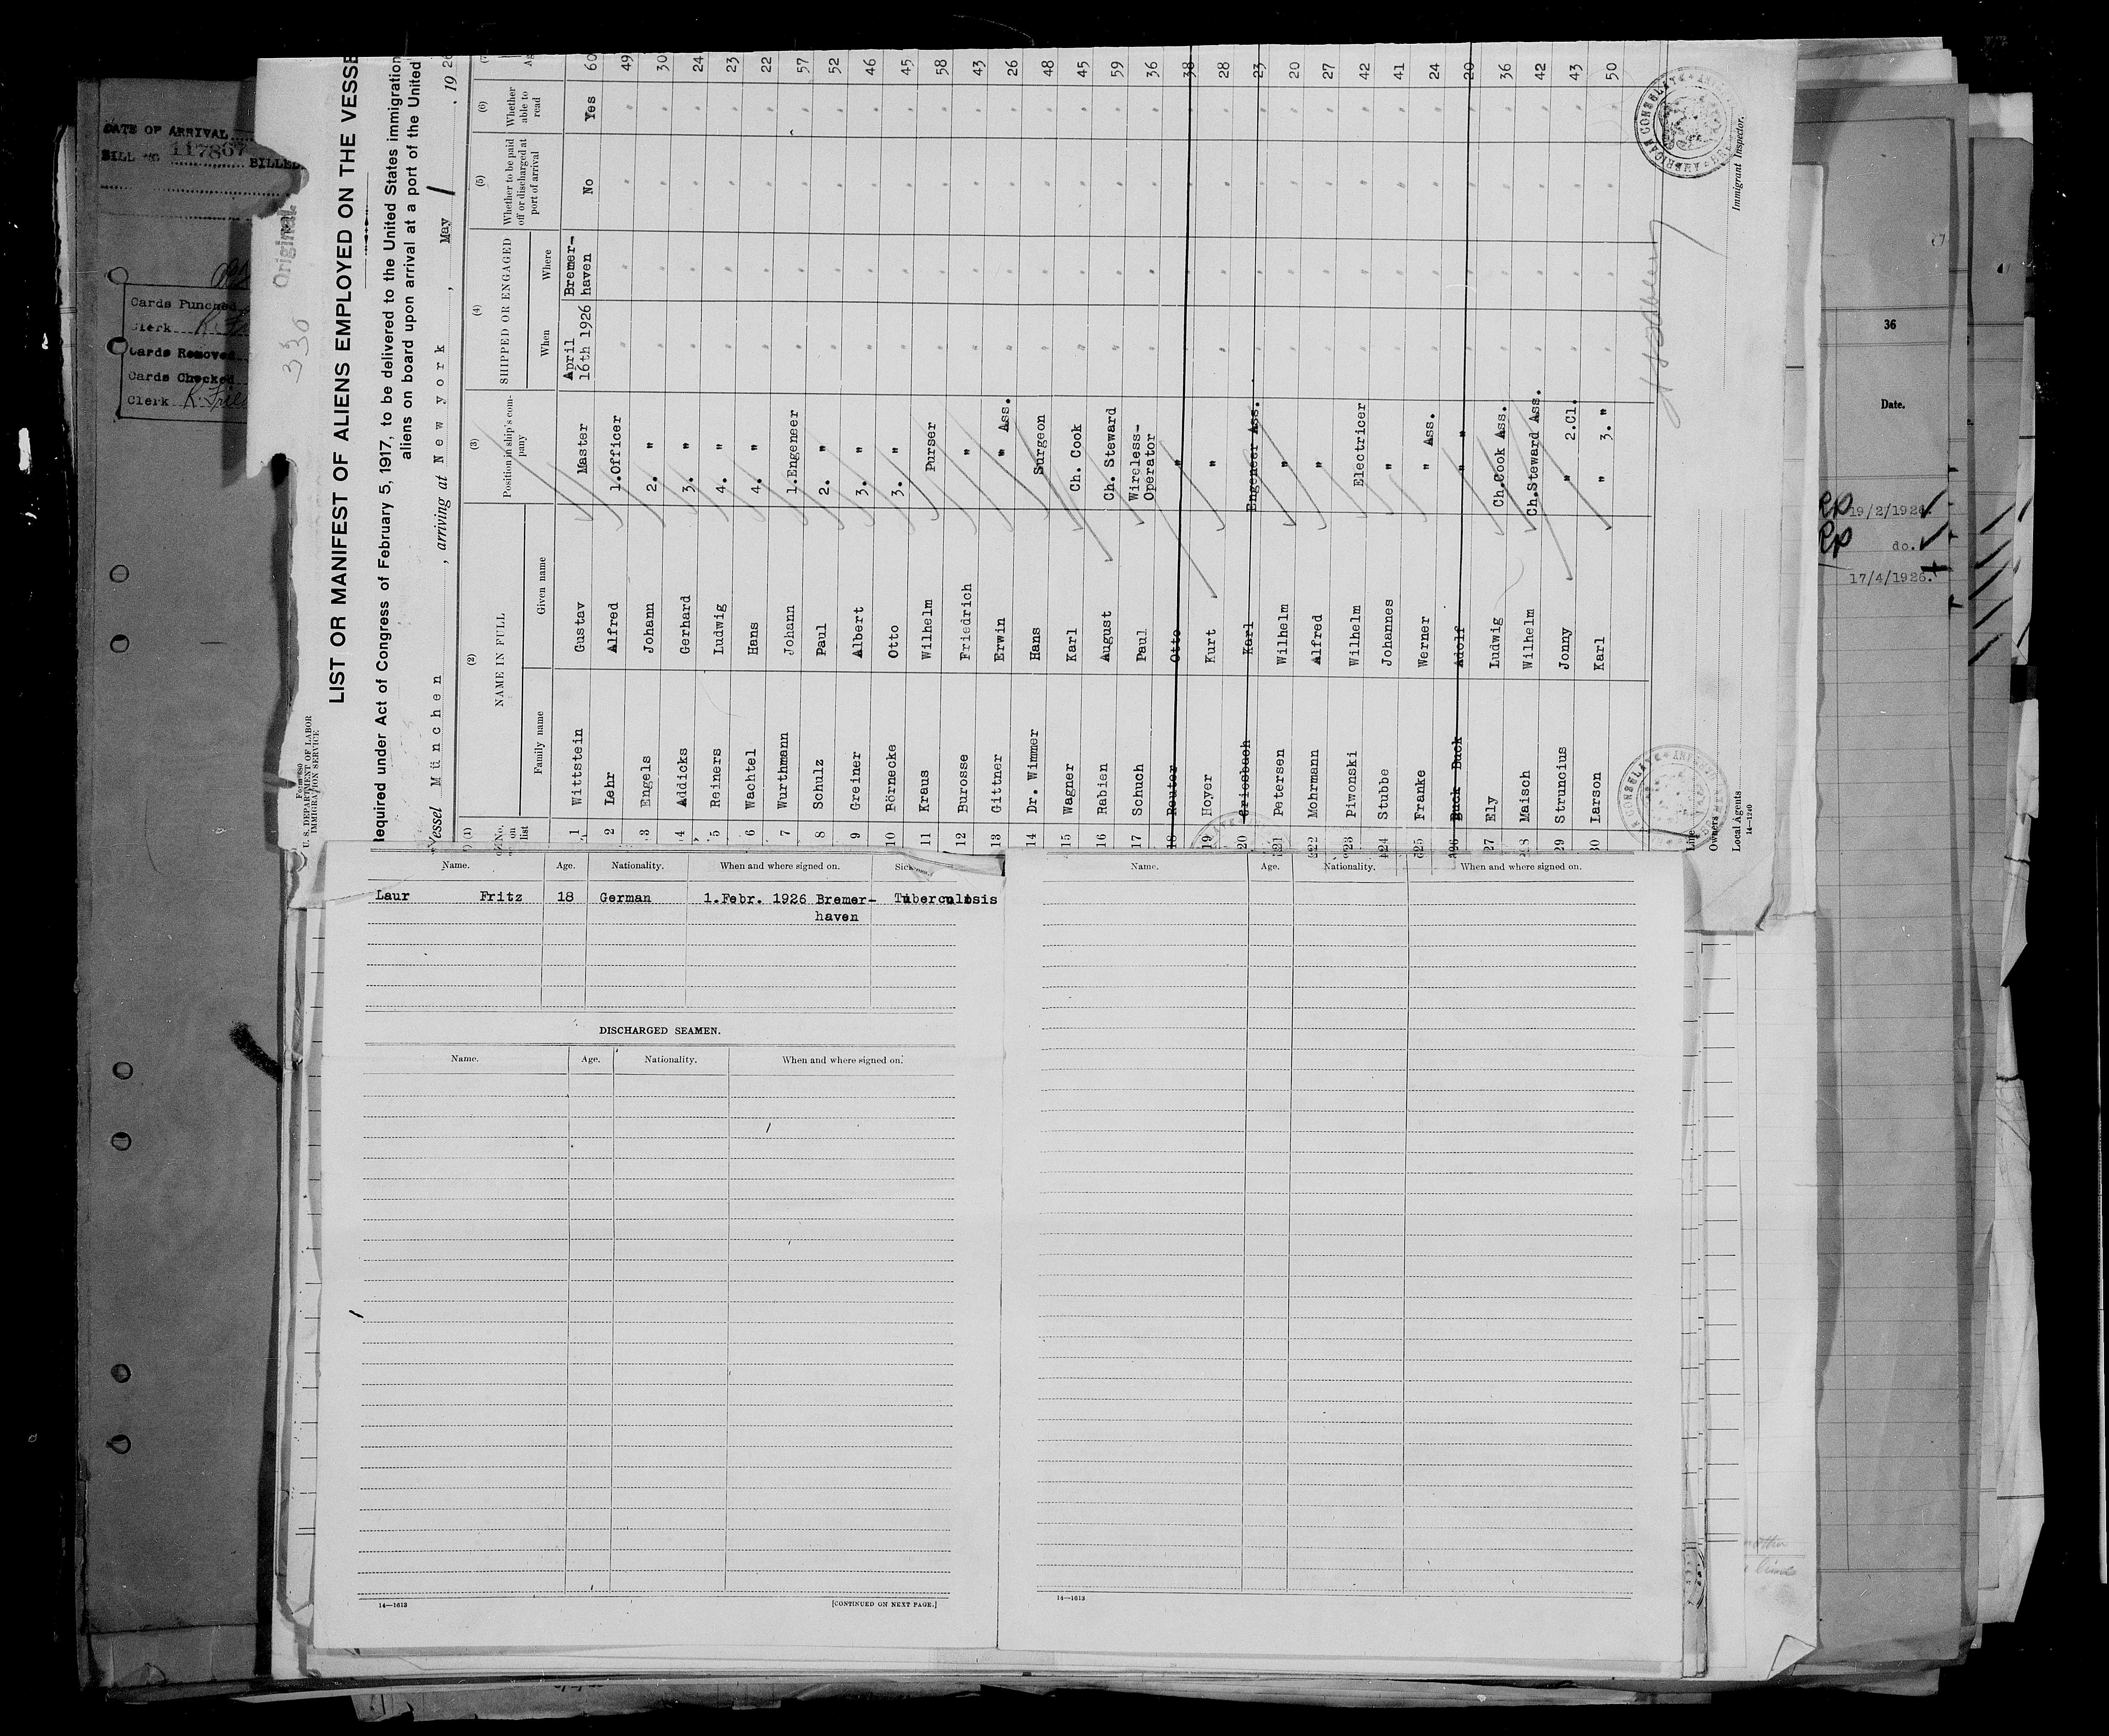 DATE OF ARRIVAL
BILL NO 117867 BILLED
Cards Punched
Clerk
Cards Removed
Cards Checked
Clerk
330 Original.
Form 680
U. S. DEPARTMENT OF LABOR
IMMIGRATION SERVICE
LIST OR MANIFEST OF ALIENS EMPLOYED ON THE VESSE
equired under Act of Congress of February 5, 1917, to be delivered to the United States immigration
aliens on board upon arrival at a port of the United
Vessel München, arriving at New york, May 1, 19 26
(1) (2) (3) (4) (5) (6)
No. on list NAME IN FULL Position in ship's company SHIPPED OR ENGAGED Whether to be paid off or discharged at port of arrival Whether able to read
Family name Given name When Where
1 Wittstein Gustav Master April 16th 1926 Bremerhaven No Yes 60
2 Lehr Alfred 1.Officer " " " " 49
3 Engels Johann 2. " " " " " 30
4 Addicks Gerhard 3. " " " " " 24
5 Reiners Ludwig 4. " " " " " 23
6 Wachtel Hans 4. " " " " " 22
7 Wurthmann Johann 1.Engeneer " " " " 57
8 Schulz Paul 2. " " " " " 52
9 Greiner Albert 3. " " " " " 46
10 Börnecke Otto 3. " " " " " 45
11 Kraus Wilhelm Purser " " " " 58
12 Burosse Friedrich " " " " " 43
13 Gittner Erwin " Ass. " " " " 26
14 Dr. Wimmer Hans Surgeon " " " " 48
15 Wagner Karl Ch. Cook " " " " 45
16 Rabien August Ch. Steward " " " " 59
17 Schuch Paul Wireless-Operator " " " " 36
18 Reuter Otto " " " " " 38
19 Hoyer Kurt " " " " " 28
20 Griesbach Karl Engeneer Ass. " " " " 23
21 Petersen Wilhelm " " " " " 20
22 Mohrmann Alfred " " " " " 27
23 Piwonski Wilhelm Electricer " " " " 42
24 Stubbe Johannes " " " " " 41
25 Franke Werner " Ass. " " " " 24
26 Buck Adolf " " " " " 20
27 Ely Ludwig Ch.Cook Ass. " " " " 36
28 Maisch Wilhelm Ch.Steward Ass. " " " " 42
29 Struncius Jonny " 2.Cl. " " " " 43
30 Larson Karl " 3. " " " " " 50
Line
Owners
Local Agents
14-1240
Immigrant Inspector.
AMERICAN CONSULATE
36
Date.
19/2/1926.
do.
17/4/1926.
Name. Age. Nationality. When and where signed on.
Laur Fritz 18 German 1.Febr. 1926 Bremer- Tuberculosis
haven
DISCHARGED SEAMEN.
Name. Age. Nationality. When and where signed on.
14—1613 [CONTINUED ON NEXT PAGE.]
Name. Age. Nationality. When and where signed on.
14—1613